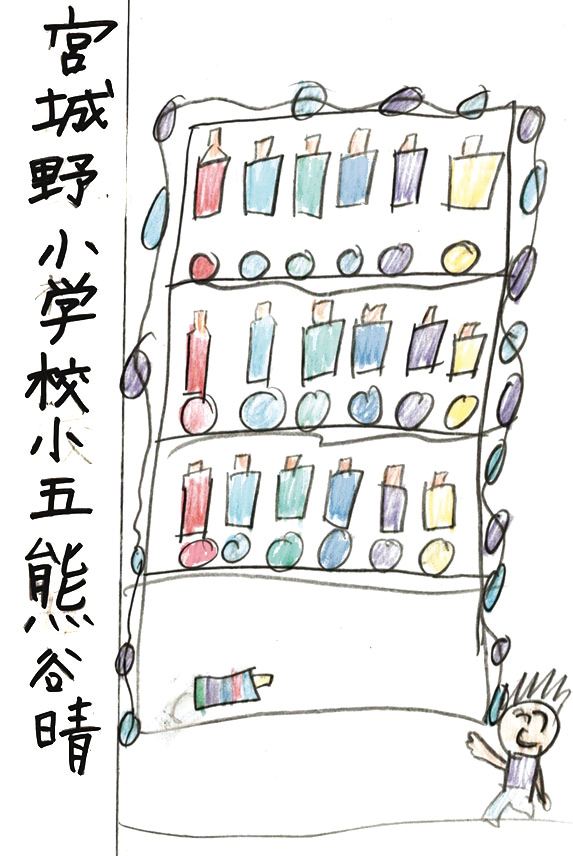 宮城野小学校小五熊谷晴